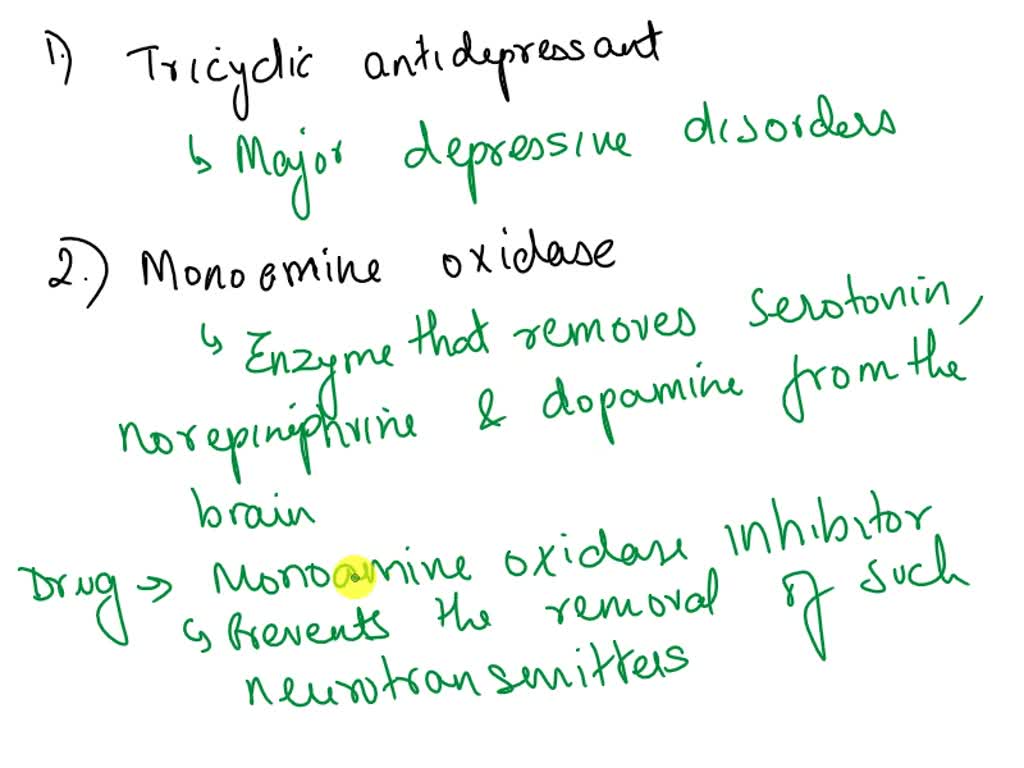 1.) Tricyclic antidepressant
↳ Major depressive disorders
2.) Monoamine oxidase
↳ Enzyme that removes serotonin,
norepiniphrine & dopamine from the
brain
Drug → Monoamine oxidase inhibitor
↳ Prevents the removal of such
neurotransmitters